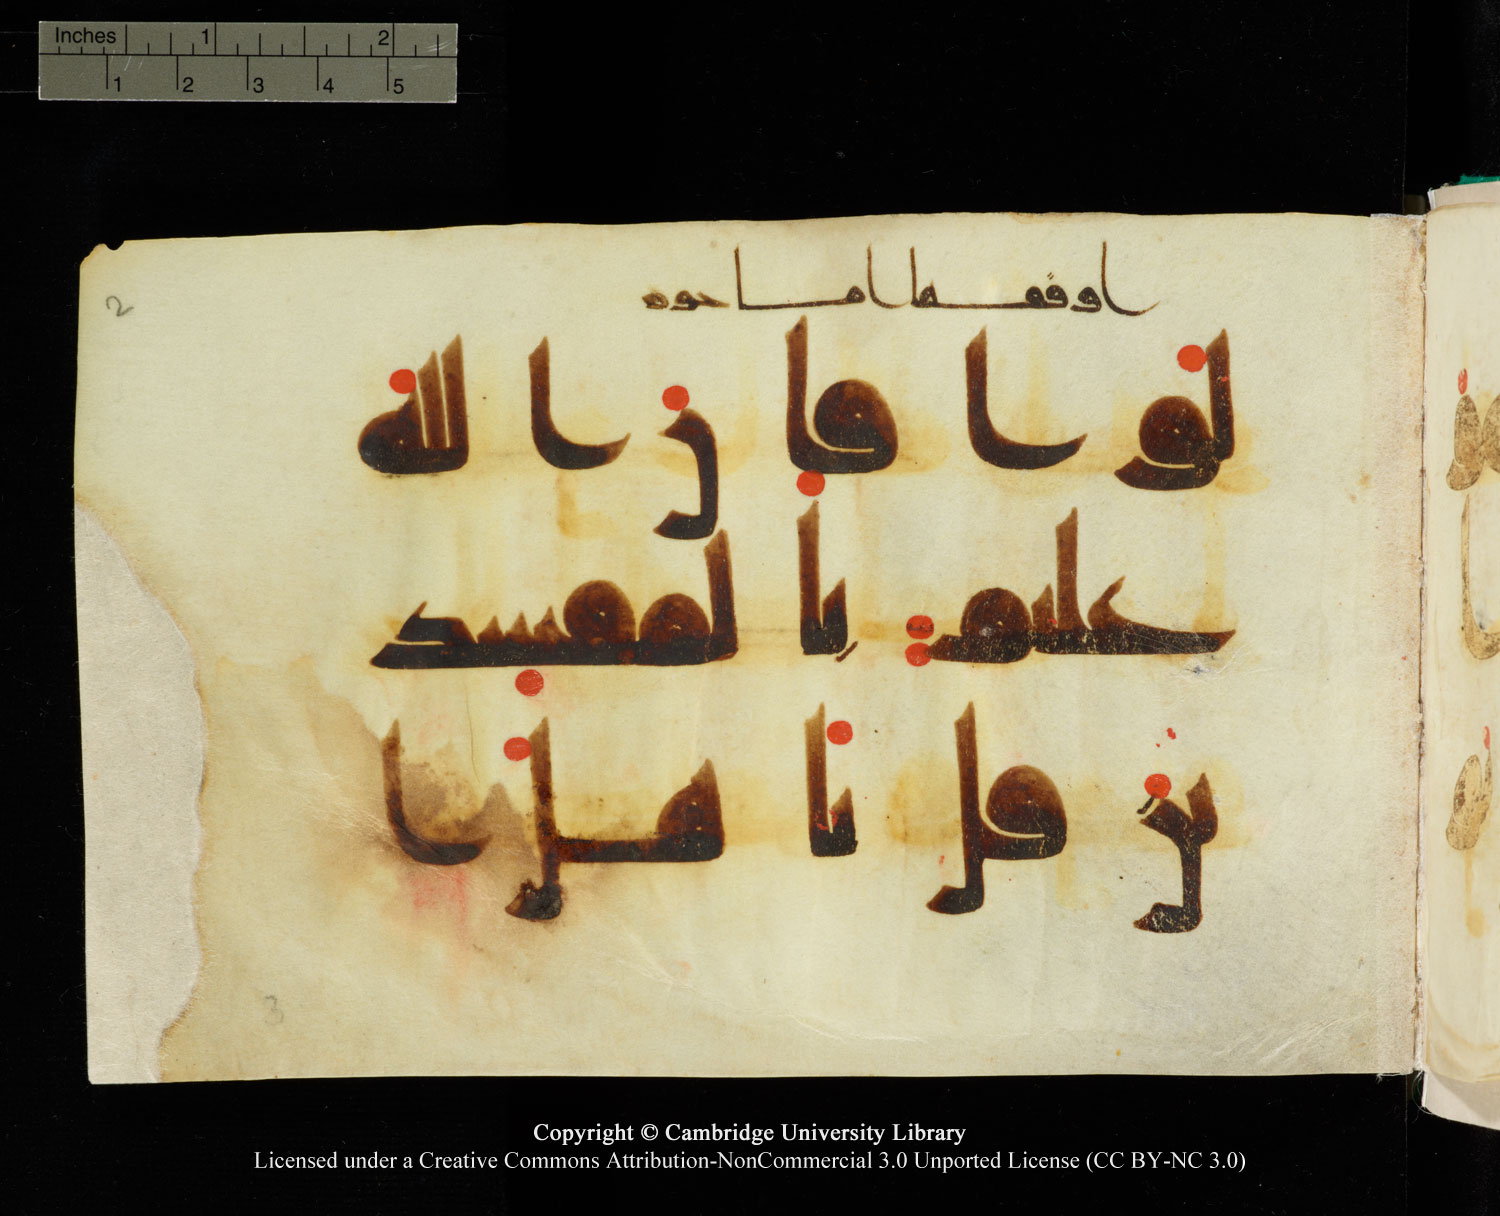 Inches 1 2
1 2 3 4 5
2
اماجور
لوا فان الله
عليم بالمفسد
ين قل ياهل ا
3
Copyright © Cambridge University Library
Licensed under a Creative Commons Attribution-NonCommercial 3.0 Unported License (CC BY-NC 3.0)